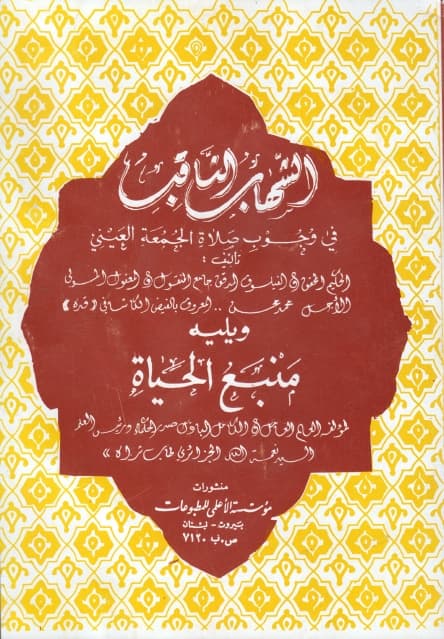 الشهاب الثاقب
في وجوب صلاة الجمعة العيني
تأليف :
الحكيم المحقق والفيلسوف المدقق جامع المنقول والمعقول المولى
الأجل محمد محسن .. المعروف بالفيض الكاشاني «قده»
ويليه
منبع الحياة
لمؤلفه العالم العامل والكامل الباذل صدر الحكماء ورئيس العلماء
السيد نعمة الله الجزائري طاب ثراه »
منشورات
مؤسسة الأعلمي للمطبوعات
بيروت - لبنان
ص.ب ٧١٢٠